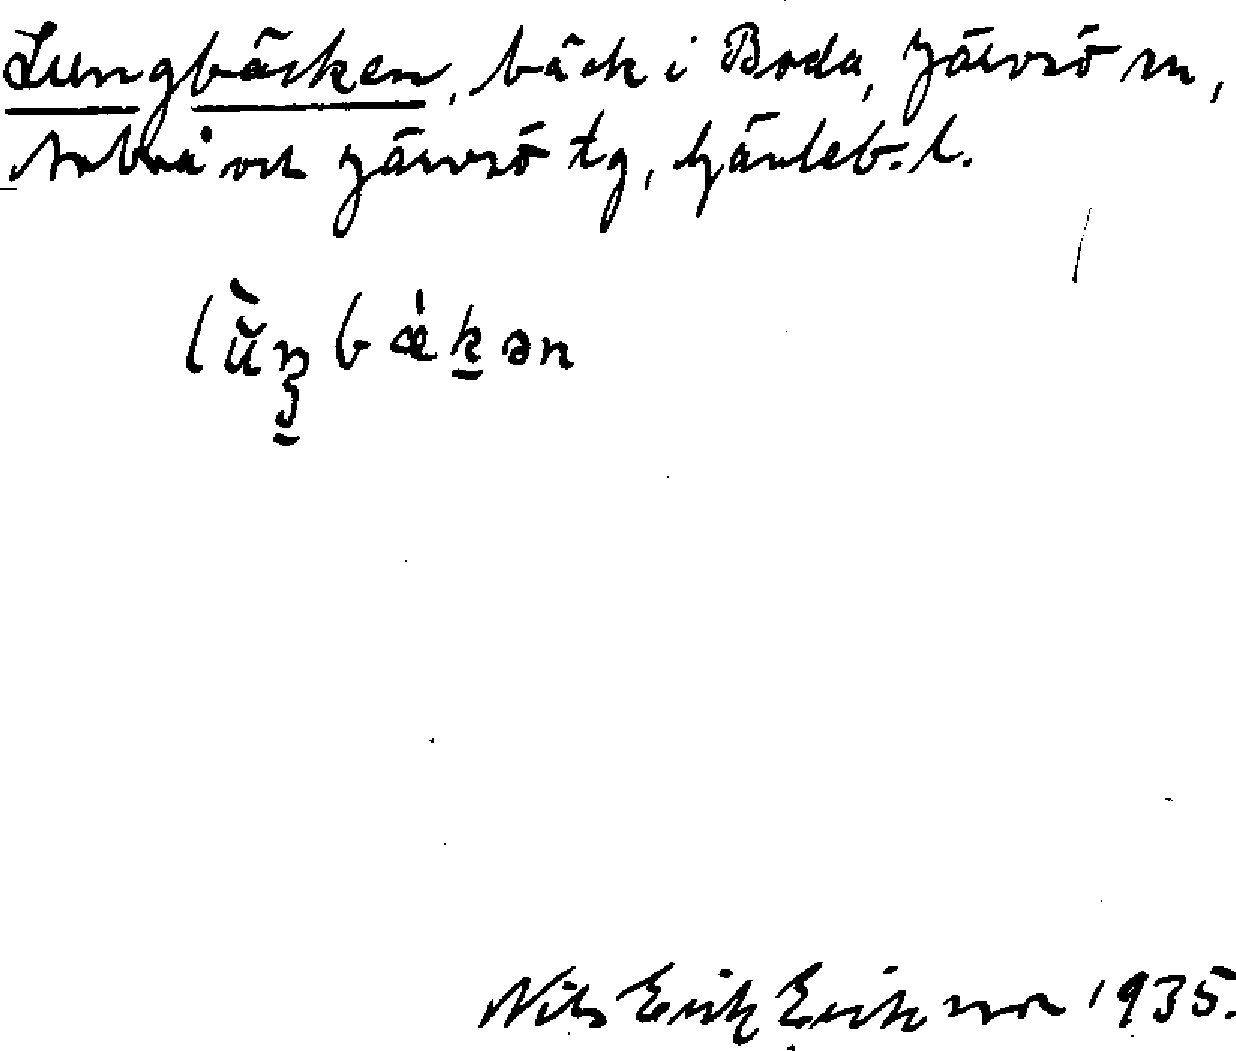 Lungbäcken, bäck i Boda, Järvsö sn,
Arbrå och Järvsö tg, Gävleb. l.
lùŋbǽkən
Nils Erik Eriksson 1935.